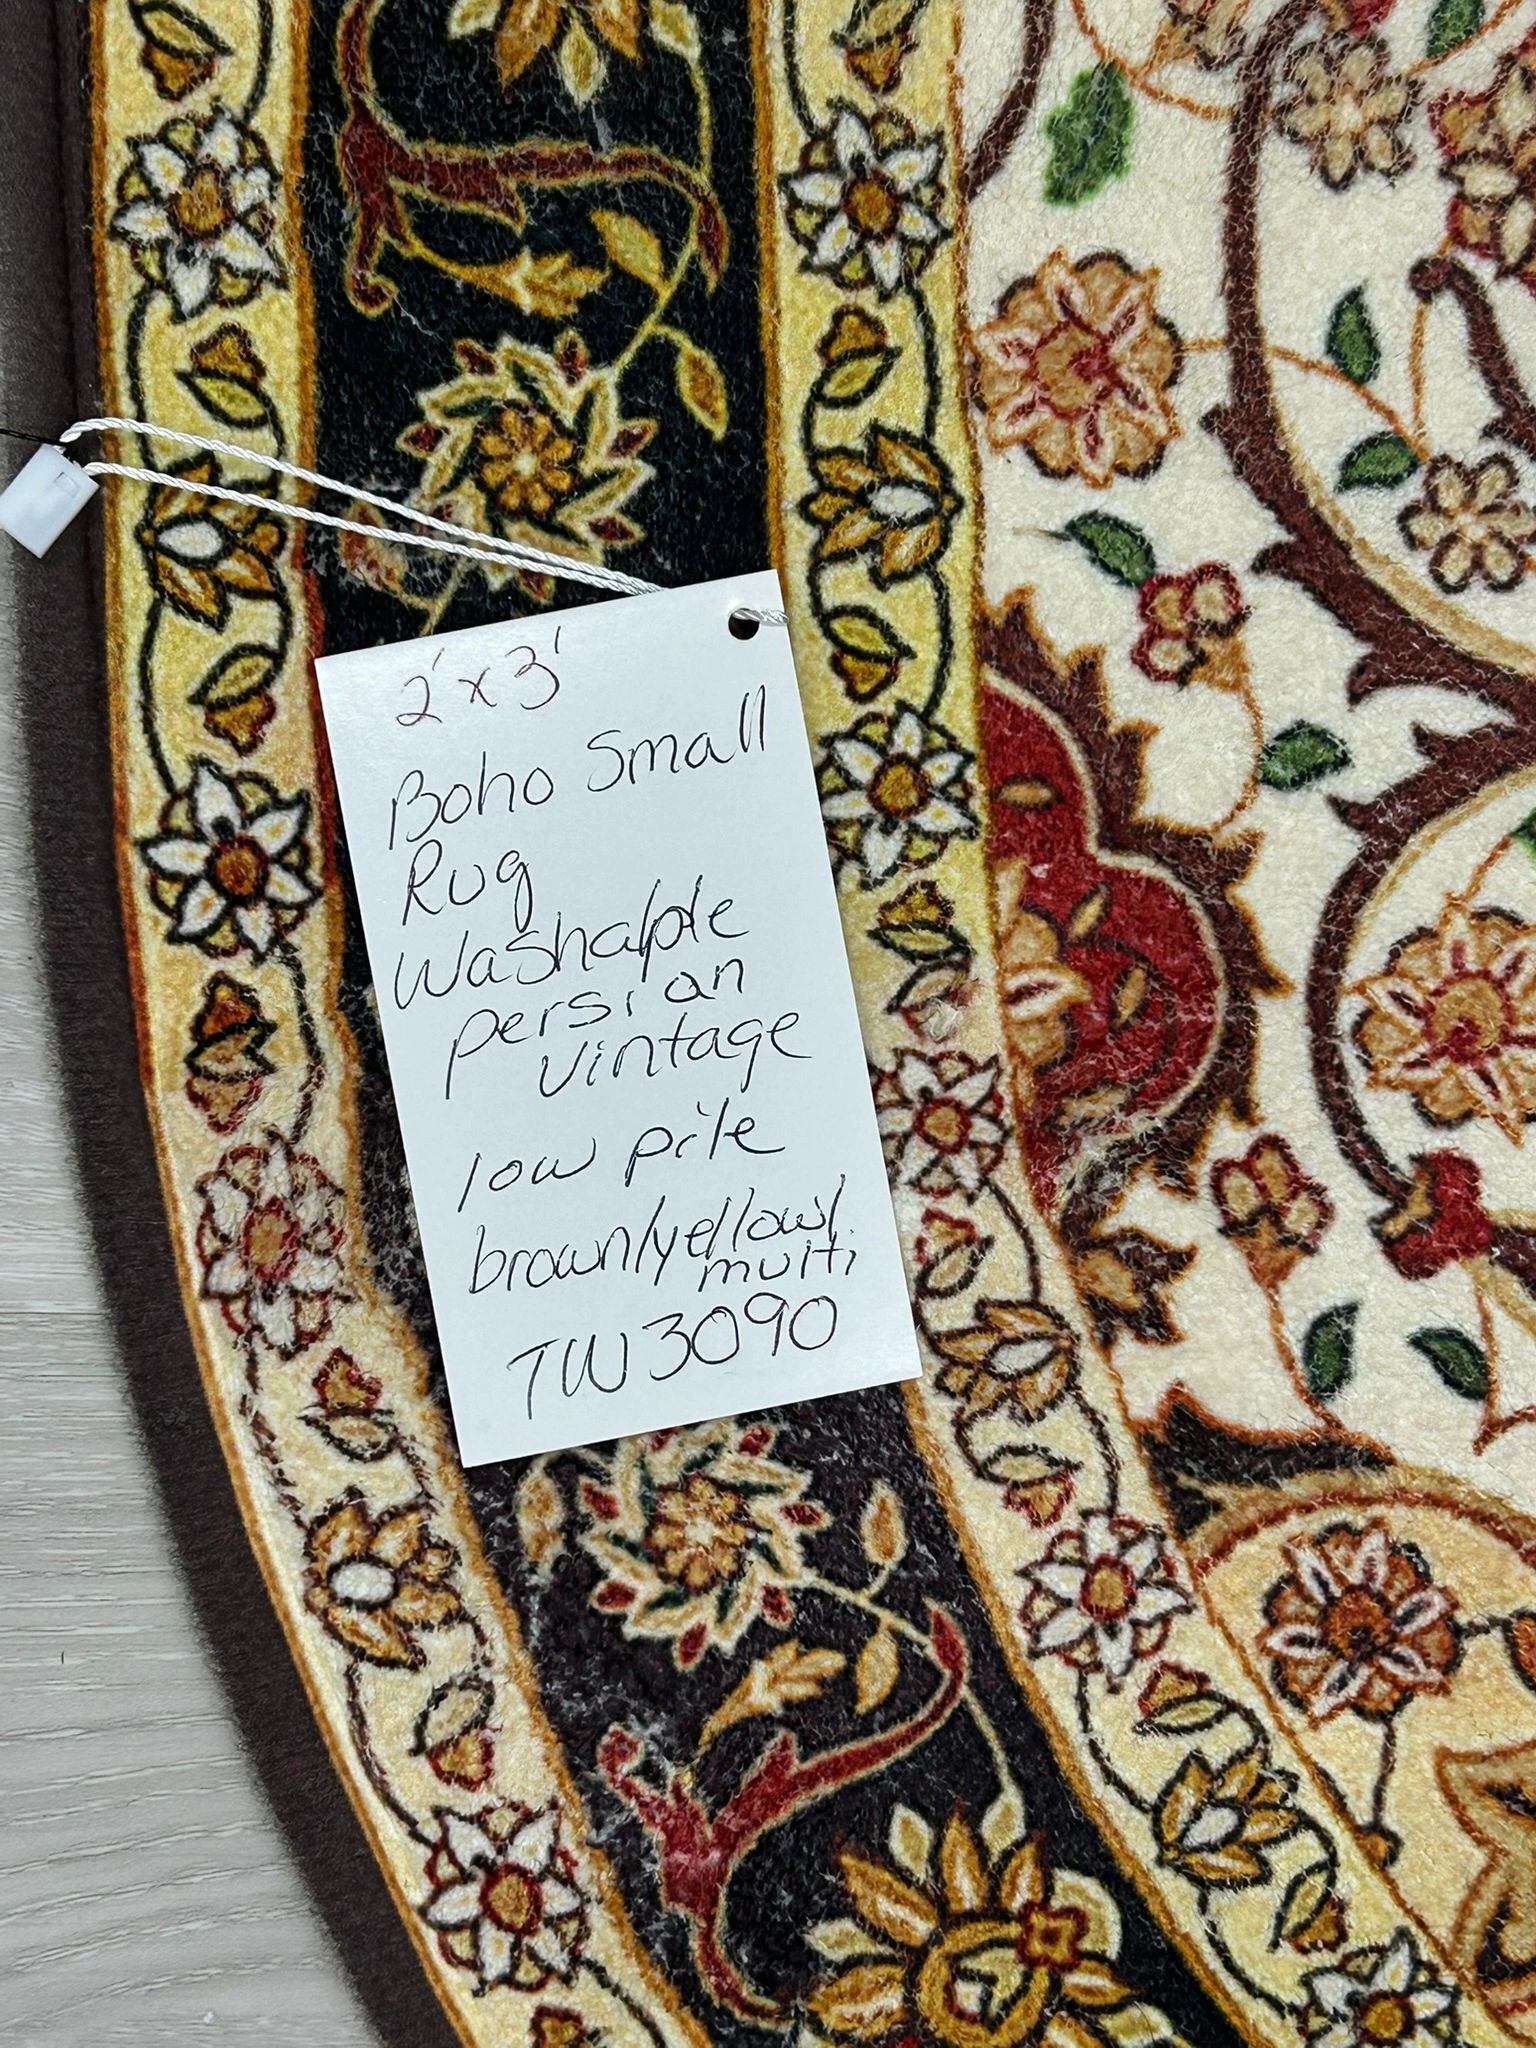 2' x 3'
Boho Small
Rug
Washable
persian
Vintage
low pile
brown/yellow/
multi
TW3090